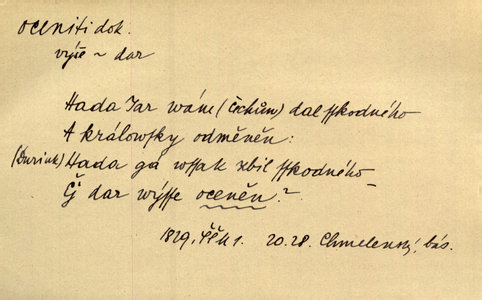 oceniti dok.
výše ~ dar
Hada Jar wám (Čechům) dal sskodného
A králowsky odměněn:
(Durink) Hada gá wssak zbil sskodného –
Čj dar wýsse oceněn?
1829, ČČM 1. 20.28. Chmelenský, bás.